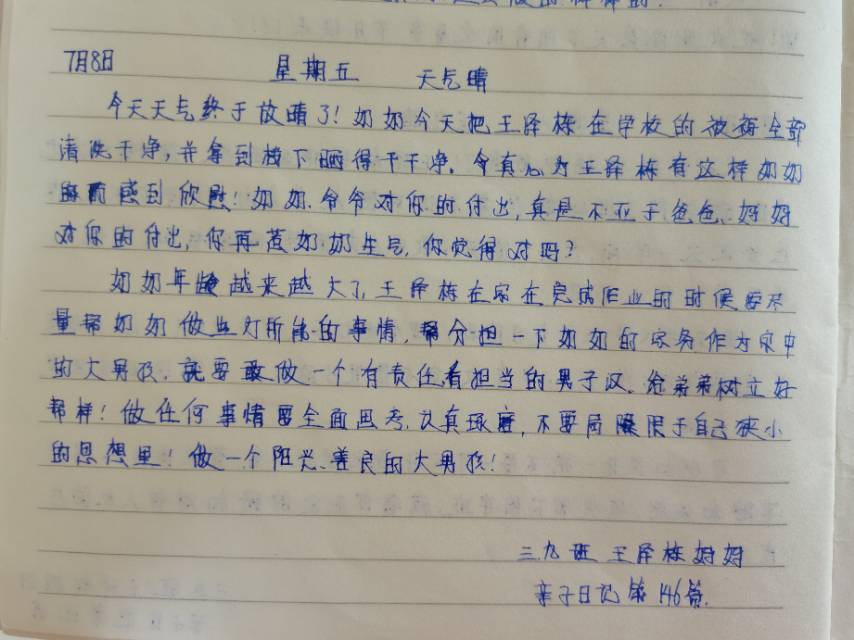 7月8日 星期五 天气晴
今天天气终于放晴了!奶奶今天把王泽栋在学校的被褥全部
清洗干净,并拿到楼下晒得干干净。令真心为王泽栋有这样奶奶
而感到欣慰!奶奶、爷爷对你的付出,真是不亚于爸爸、妈妈
对你的付出,你再惹奶奶生气,你觉得对吗?
奶奶年龄越来越大了,王泽栋在家在完成作业的时候要尽
量帮奶奶做些力所能的事情,帮分担一下奶奶的家务作为家中
的大男孩,就要敢做一个有责任,有担当的男子汉,给弟弟树立好
帮样!做任何事情要全面思考,认真琢磨,不要局限于自己狭小
的思想里!做一个阳光、善良的大男孩!
三九班 王泽栋妈妈
亲子日记第146篇.